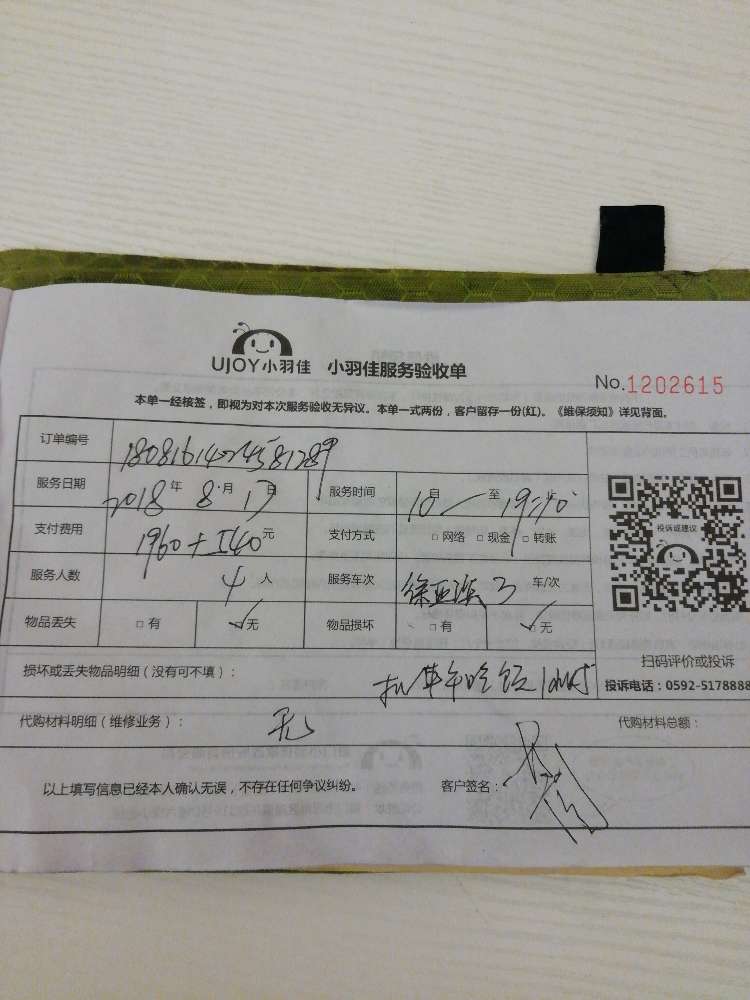 UJOY小羽佳 小羽佳服务验收单
No.1202615
本单一经核签，即视为对本次服务验收无异议。本单一式两份，客户留存一份(红)。《维保须知》详见背面。
订单编号
服务日期 2018年8月17日 服务时间 10 至 19:40
支付费用 1960+140元 支付方式 □网络 □现金 □转账
服务人数 4人 服务车次 3 车/次
物品丢失 □有 ☑无 物品损坏 □有 ☑无
投诉或建议
扫码评价或投诉
投诉电话：0592-5178888
损坏或丢失物品明细（没有可不填）：
代购材料明细（维修业务）： 无 代购材料总额：
以上填写信息已经本人确认无误，不存在任何争议纠纷。 客户签名：